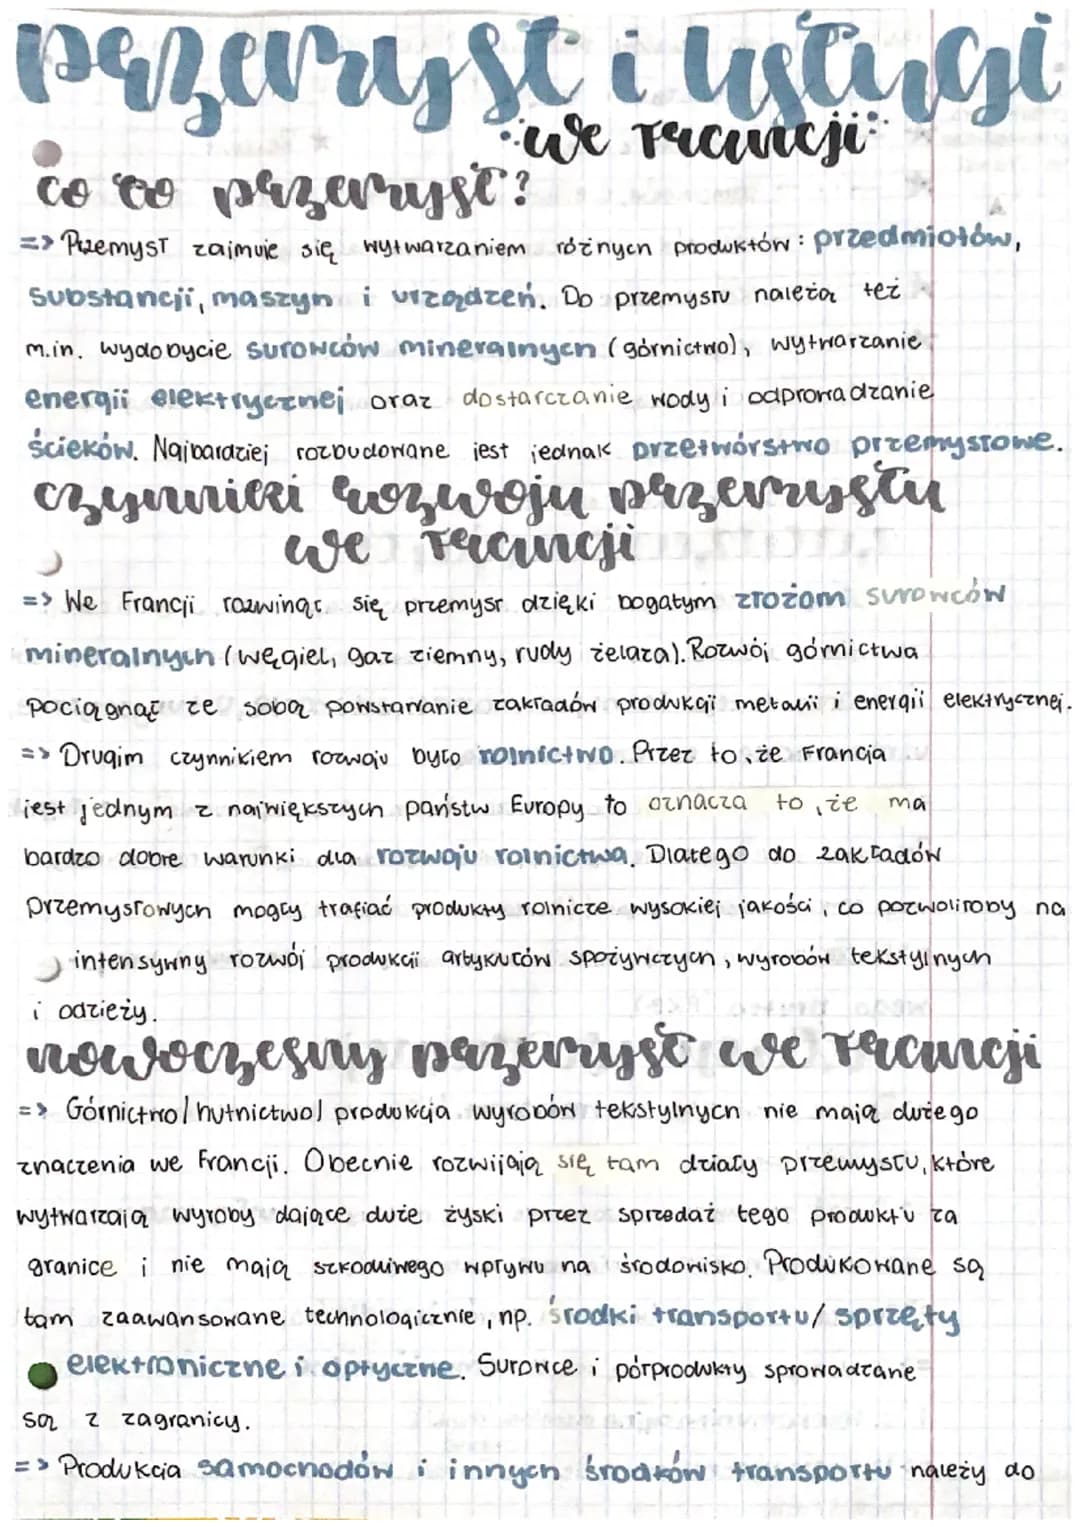 przemysł i usługi
we Francji
co to przemysł?
=> Przemysł zajmuje się wytwarzaniem różnych produktów: przedmiotów,
substancji, maszyn i urządzeń. Do przemysłu należą też
m.in. wydobycie surowców mineralnych (górnictwo), wytwarzanie
energii elektrycznej oraz dostarczanie wody i odprowadzanie
ścieków. Najbardziej rozbudowane jest jednak przetwórstwo przemysłowe.
czynniki rozwoju przemysłu
we Francji
=> We Francji rozwinął się przemysł dzięki bogatym złożom surowców
mineralnych (węgiel, gaz ziemny, rudy żelaza). Rozwój górnictwa
pociągnął ze sobą powstawanie zakładów produkcji metalii i energii elektrycznej.
=> Drugim czynnikiem rozwoju było rolnictwo. Przez to, że Francja
jest jednym z największych państw Europy to oznacza to, że ma
bardzo dobre warunki dla rozwoju rolnictwa. Dlatego do zakładów
przemysłowych mogły trafiać produkty rolnicze wysokiej jakości, co pozwoliłoby na
intensywny rozwój produkcji artykułów spożywczych, wyrobów tekstylnych
i odzieży.
nowoczesny przemysł we Francji
=> Górnictwo/hutnictwo/ produkcja wyrobów tekstylnych nie mają dużego
znaczenia we Francji. Obecnie rozwijają się tam działy przemysłu, które
wytwarzają wyroby dające duże żyski przez sprzedaż tego produktu za
granice i nie mają szkodliwego wpływu na środowisko. Produkowane są
tam zaawansowane technologicznie, np. środki transportu/ sprzęty
elektroniczne i optyczne. Surowce i półprodukty sprowadzane
są z zagranicy.
=> Produkcja samochodów i innych środków transportu należy do